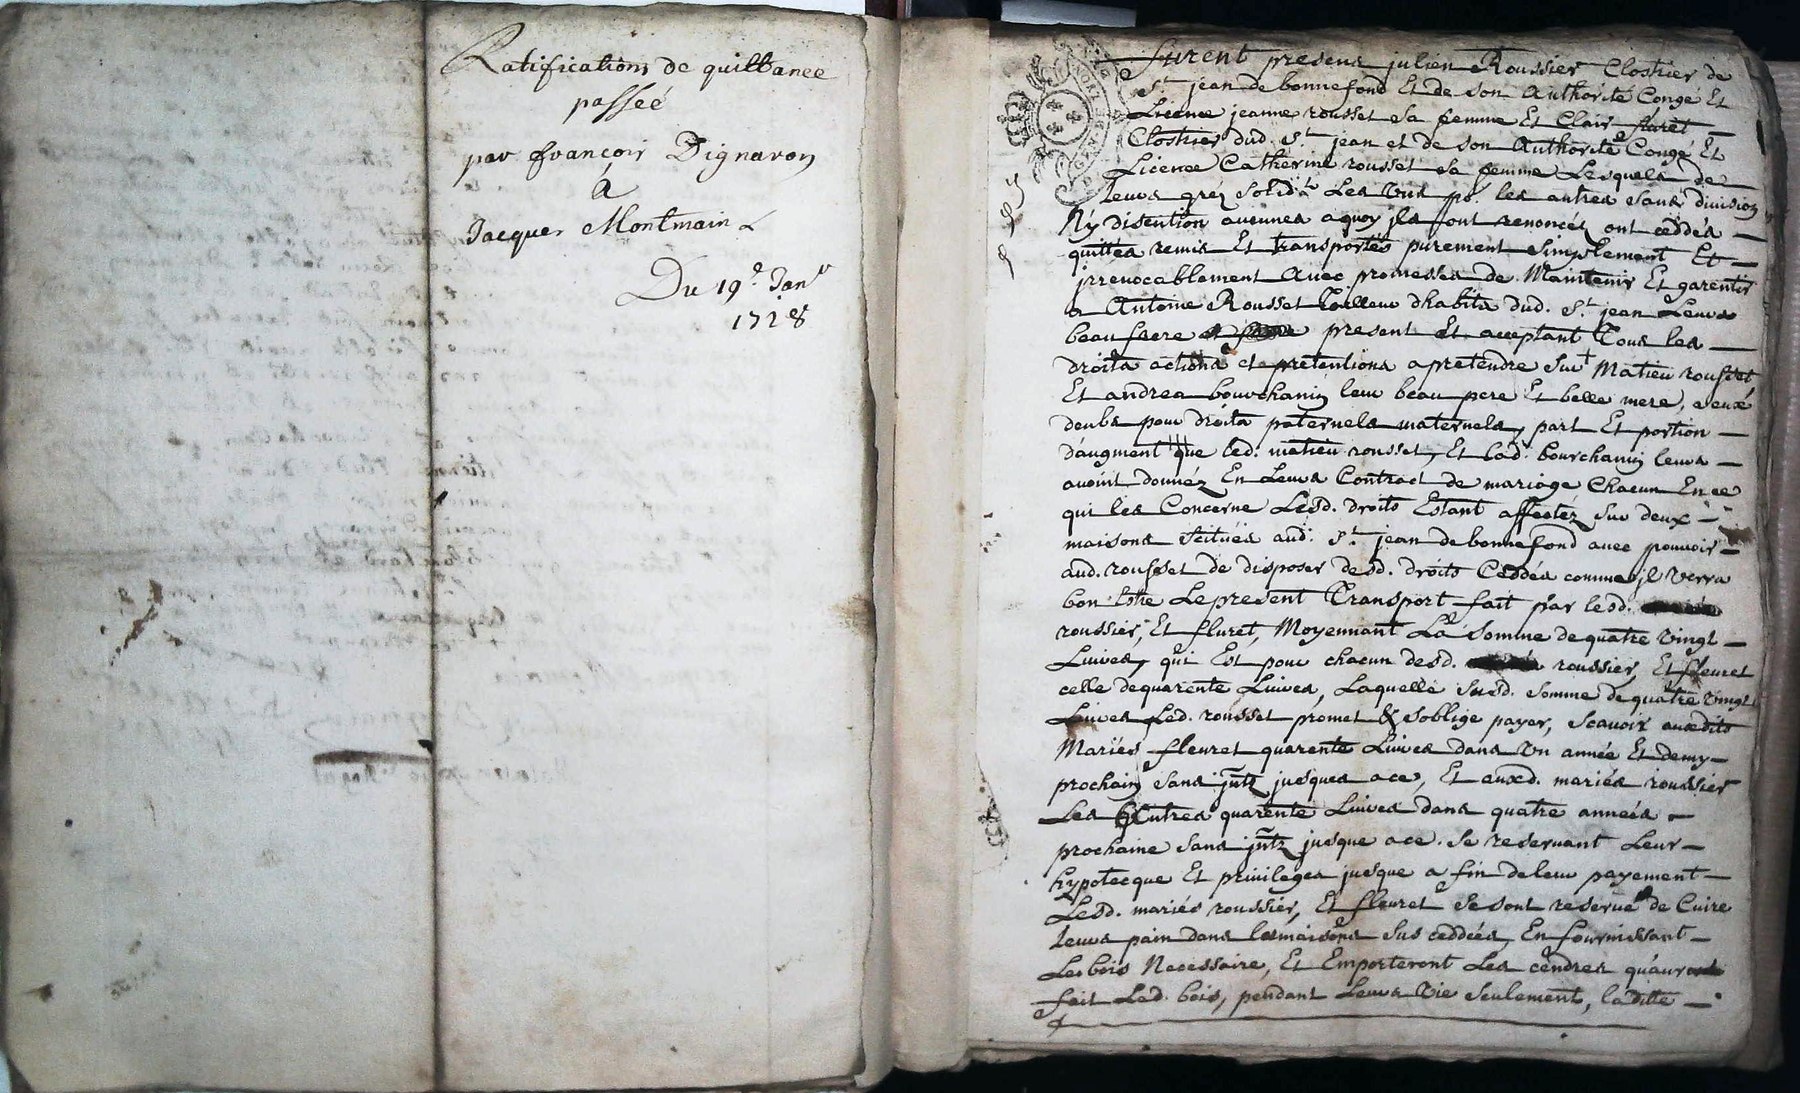 Ratifications de quittance
passeé
par françois Dignaron
á
Jacques Montmain
Du 19.e Janr
1728
furent presens julien Roussier Clostrier de
St. jean de bonnefond Et de son Authorité Congé Et
Licence jeanne rousset sa femme Et Clair fluret
Clostrier dud. St. jean et de son Authorité Congé Et
Licence Catherine rousset sa femme Lesquels de
leurs gréz solidt Les Uns po. les autres sans division
Ny disention aucunes a quoy jls ont renoncéz ont ceddés
quittés remis Et transportés purement simplement Et
jrrevocablement Avec promesses de Maintenir Et garentir
a Antoine Rousset dhabits dud. St. jean Leurs
beau frere present Et acceptant Tous les
droits actions et pretentions a pretendre sur Matieu rousset
Et andrea bourchanin leur beau pere Et belle mere, a eux
deubs pour droits paternels maternels, part Et portion
d'augment que led. matieu rousset, Et lad. bourchanin leurs
avoint donnéz En Leurs Contract de mariage Chacun En ce
qui les Concerne Lesd. droits Estant affectéz sur deux
maisons scituées aud. St. jean de bonnefond avec pouvoir
aud. rousset de disposer desd. droits Ceddés comme jl verra
bon Estre Le present Transport fait par lesd.
roussier, Et fluret, Moyennant La somme de quatre vingt
Livres, qui Est pour chacun desd. roussier, Et fleuret
celle de quarente Livres, Laquelle susd. somme de quatre vingt
Livres Led. rousset promet & soblige payer, scavoir auxdits
Mariés fleuret quarente Livres dans Un année Et demy
prochain sans jntz jusques a ce, Et auxd. mariés roussier
Les Autres quarente Livres dans quatre années
prochaine sans jntz jusque a ce. se reservant Leur
hypotecque Et privileges jusque a fin de leur payement
Lesd. mariés roussier, Et fleuret se sont reservé de Cuire
leurs pain dans les maisons sus ceddées, En fournissant
Le bois Necessaire, Et Emporteront Les cendres qu'aura
fait Led. bois, pendant Leurs Vie seulement, laditte